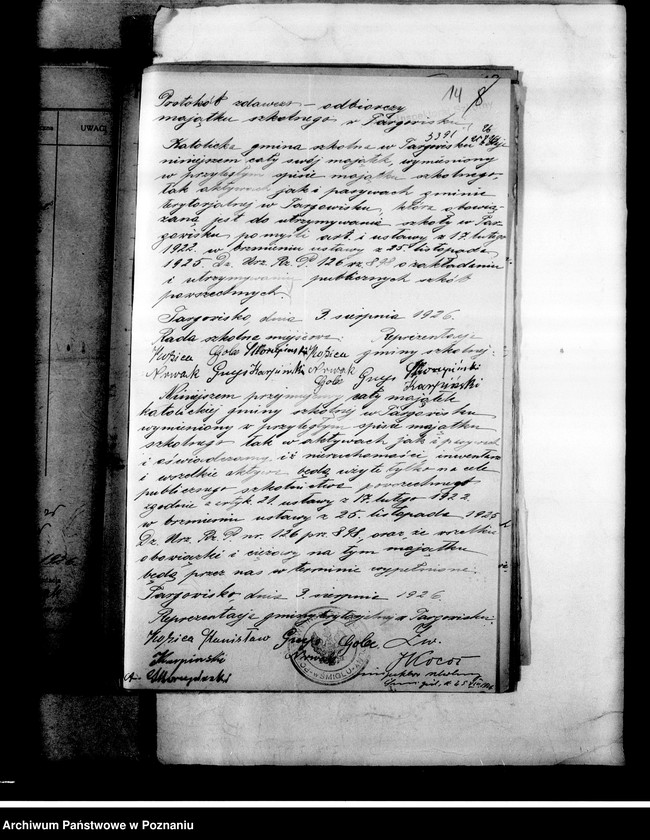 UWAGI
14
8
Protokół zdawczo-odbiorczy
majątku szkolnego w Targowisku.
5391
Katolicka gmina szkolna w Targowisku
niniejszem cały swój majątek, wymieniony
w przyległym spisie majątku szkolnego,
tak aktywach jak i pasywach gminie
terytorjalnej w Targowisku, która obowią-
zaną jest do utrzymywania szkoły w Tar-
gowisku po myśli art. 1 ustawy z 17. lutego
1922 w brzmieniu ustawy z 25. listopada
1925 Dz. Urz. Rz. P. 126 rz. 898 o zakładaniu
i utrzymywaniu publicznych szkół
powszechnych.
Targowisko, dnia 3. sierpnia 1926.
Rada szkolna miejscowa: Reprezentacja
Kopica Gola Kopica gminy szkolnej:
Nowak Gryś Karpiński Nowak
Gola Gryś Karpiński
Niniejszem przyjmujemy cały majątek
katolickiej gminy szkolnej w Targowisku
wymieniony w przyległym spisie majątku
szkolnego tak w aktywach, jak i pasywach
i oświadczamy, iż nieruchomości, inwentarz
i wszelkie aktywa będą użyte tylko na cele
publicznego szkolnictwa powszechnego
zgodnie z artyk. 21 ustawy z 17. lutego 1922.
w brzmieniu ustawy z 25. listopada 1925
Dz. Urz. Rz. P. nr. 126 pr. 898, oraz, że wszelkie
obowiązki i ciężary na tym majątku
będą przez nas w terminie wypełnione.
Targowisko, dnia 3. sierpnia 1926.
Reprezentacja gminy terytorjalnej w Targowisku.
Kopica Stanisław Gryś Gola Zw.
Karpiński Nowak Kocoń
inspektor szkolny
W ŚMIGLU
Archiwum Państwowe w Poznaniu